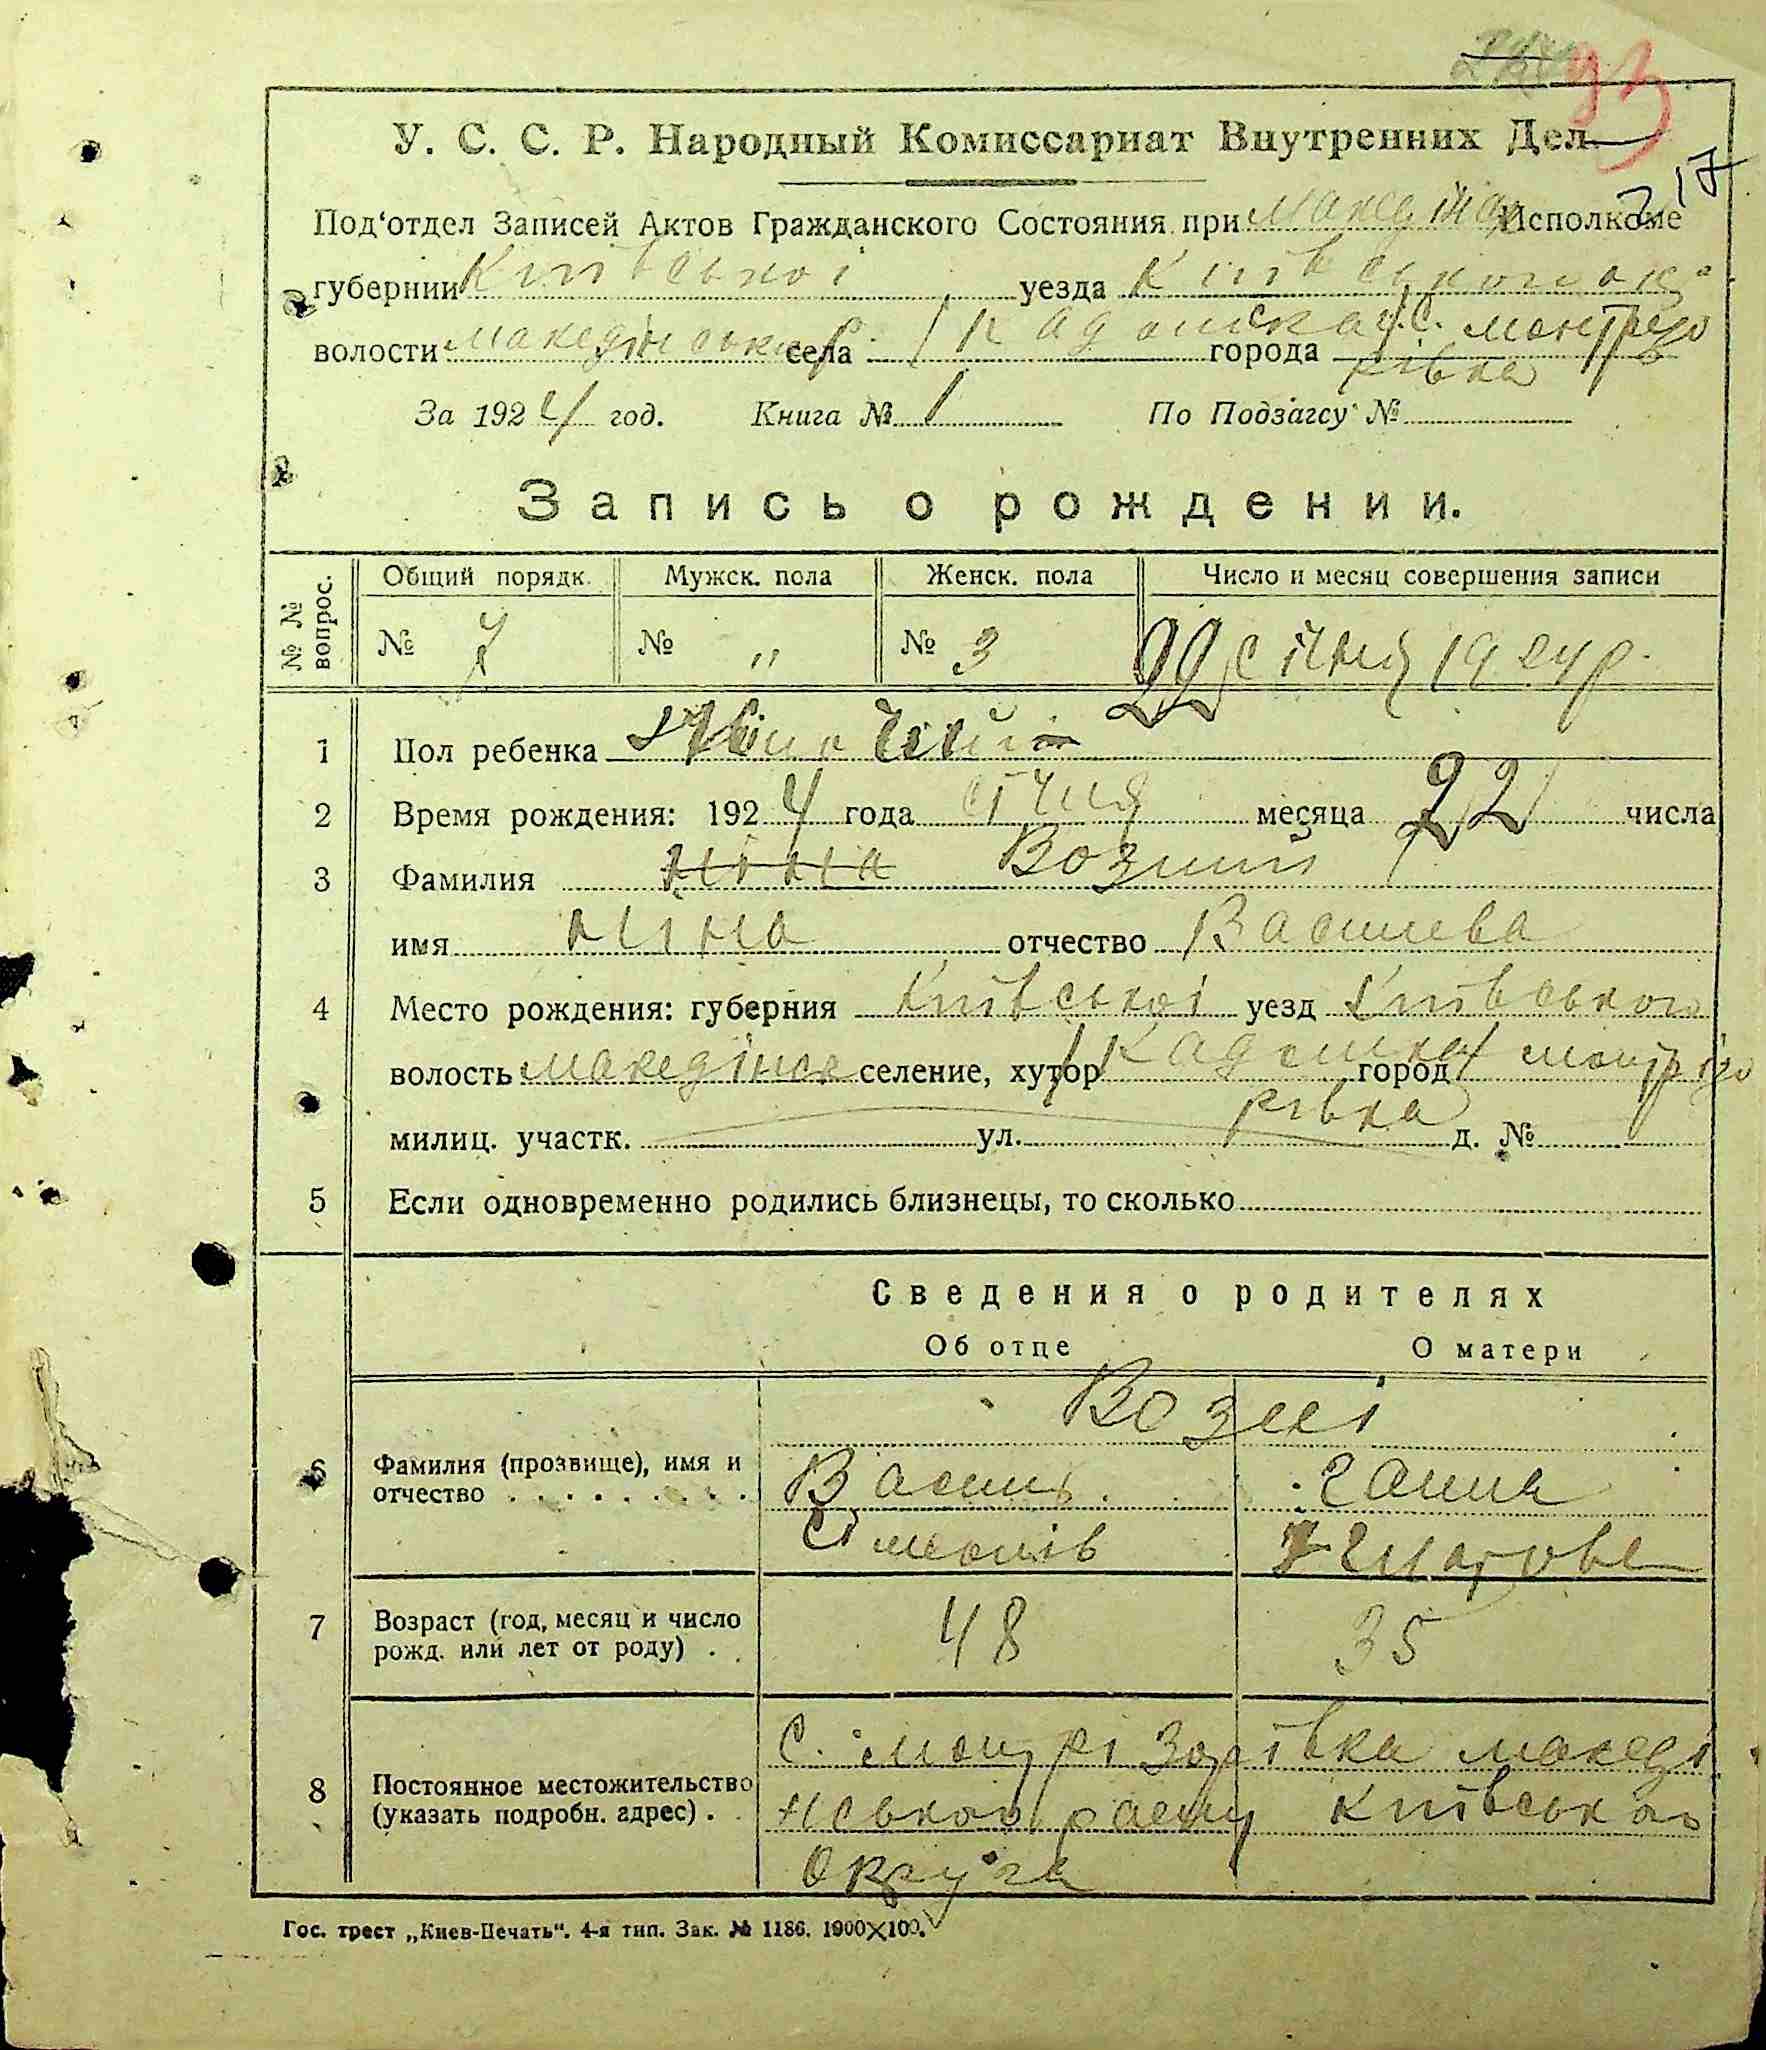 93
217
У. С. С. Р. Народный Комиссариат Внутренних Дел
Под‘отдел Записей Актов Гражданского Состояния при Исполкоме
губернии Київської уезда Київського
волости села города
За 1924 год. Книга № 1 По Подзагсу №
Запись о рождении.
№ № вопрос. Общий порядк. Мужск. пола Женск. пола Число и месяц совершения записи
№ 7 № „ № 3 22 січня 1924 р.
1 Пол ребенка Жіночий
2 Время рождения: 1924 года січня месяца 22 числа
3 Фамилия Ніна Возний
имя Ніна отчество Василева
4 Место рождения: губерния Київської уезд Київського
волость македінск селение, хутор город
рівка
милиц. участк. ул. д. №
5 Если одновременно родились близнецы, то сколько
Сведения о родителях
Об отце О матери
Возні
6 Фамилия (прозвище), имя и Василь Ганна
отчество Сімонів
7 Возраст (год, месяц и число 48 35
рожд. или лет от роду)
С. македі
8 Постоянное местожительство
(указать подробн. адрес) нського раену Київського
Округа
Гос. трест „Киев-Печать“. 4-я тип. Зак. № 1186. 1900×100.